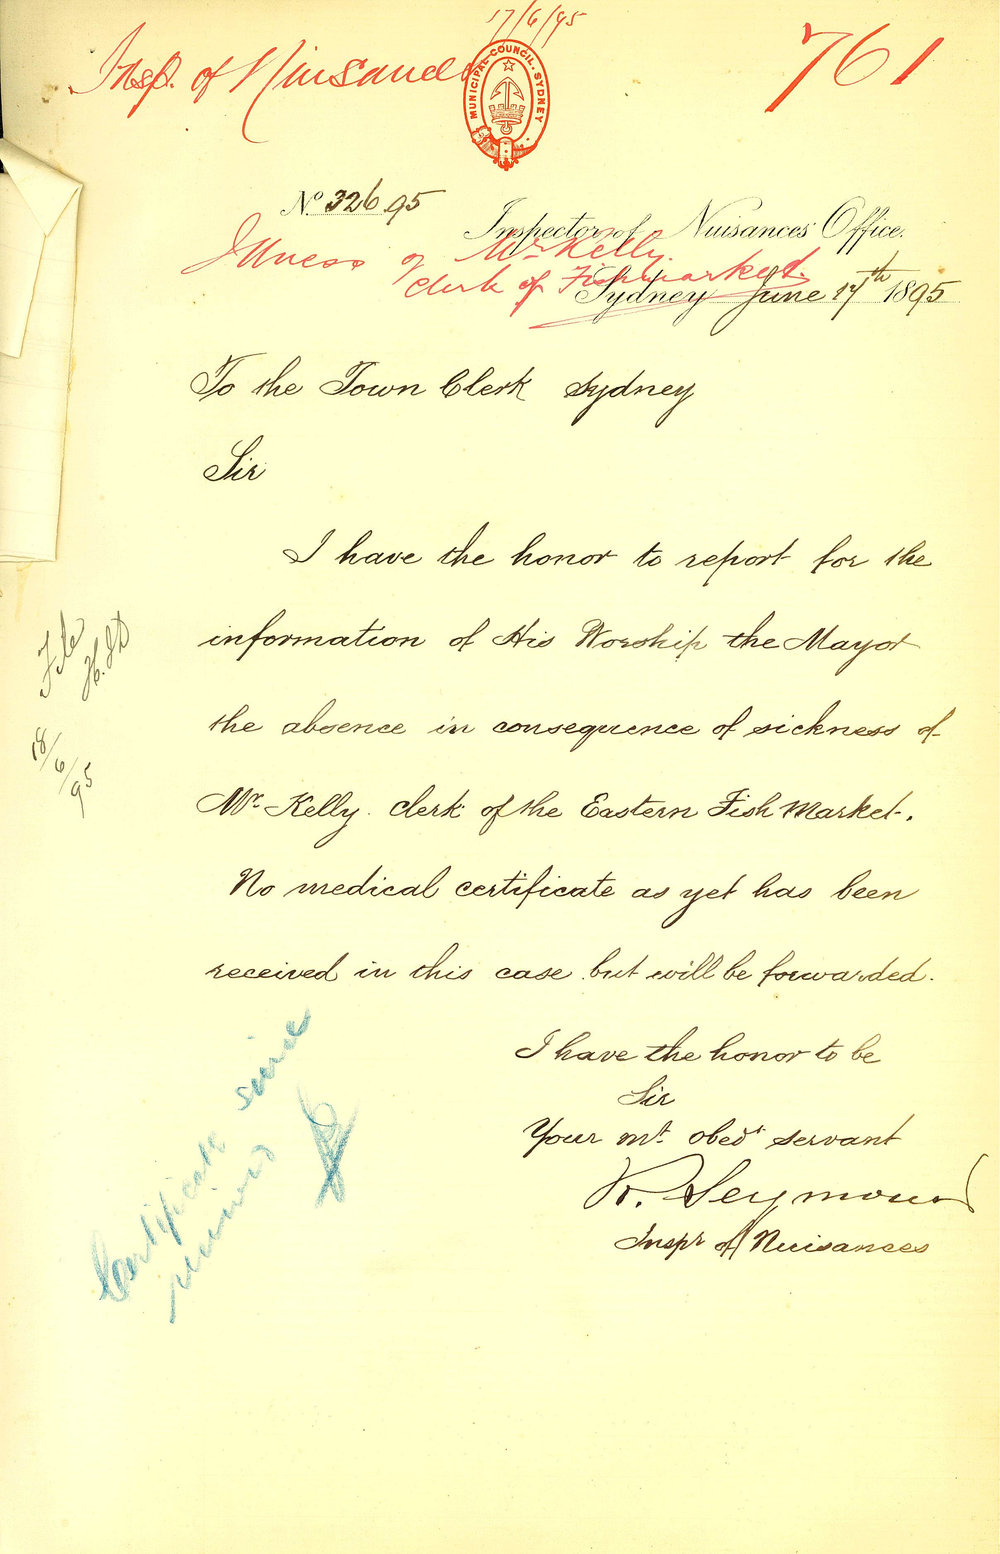 17/6/95
Insp. of Nuisances
761
MUNICIPAL COUNCIL. SYDNEY
No. 326 95
Inspector of Nuisances Office.
Illness of Mr Kelly.
clerk of Fishmarket.
Sydney June 17th 1895
To the Town Clerk Sydney
Sir
I have the honor to report for the
information of His Worship the Mayor
the absence in consequence of sickness of
Mr. Kelly. clerk of the Eastern Fish Market.
No medical certificate as yet has been
received in this case but will be forwarded.
I have the honor to be
Sir
Your mt. obedt servant
R. Seymour
Inspr of Nuisances
File
18/6/95
Certificate since
received